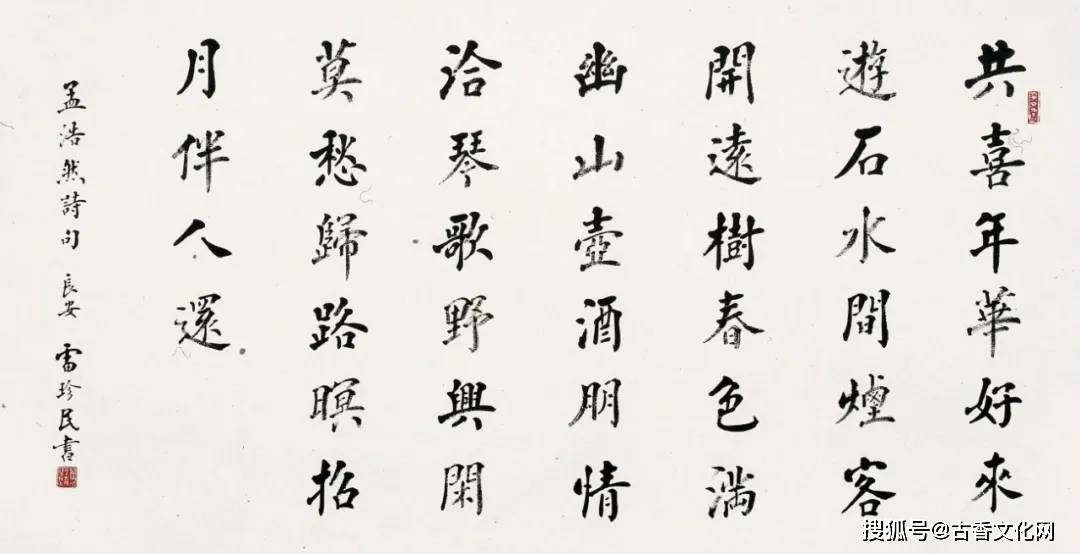 共喜年華好來
遊石水間煙容
開遠樹春色滿
幽山壺酒朋情
洽琴歌野興閑
莫愁歸路暝招
月伴人還
孟浩然詩句 長安 雷珍民書
搜狐号@古香文化网